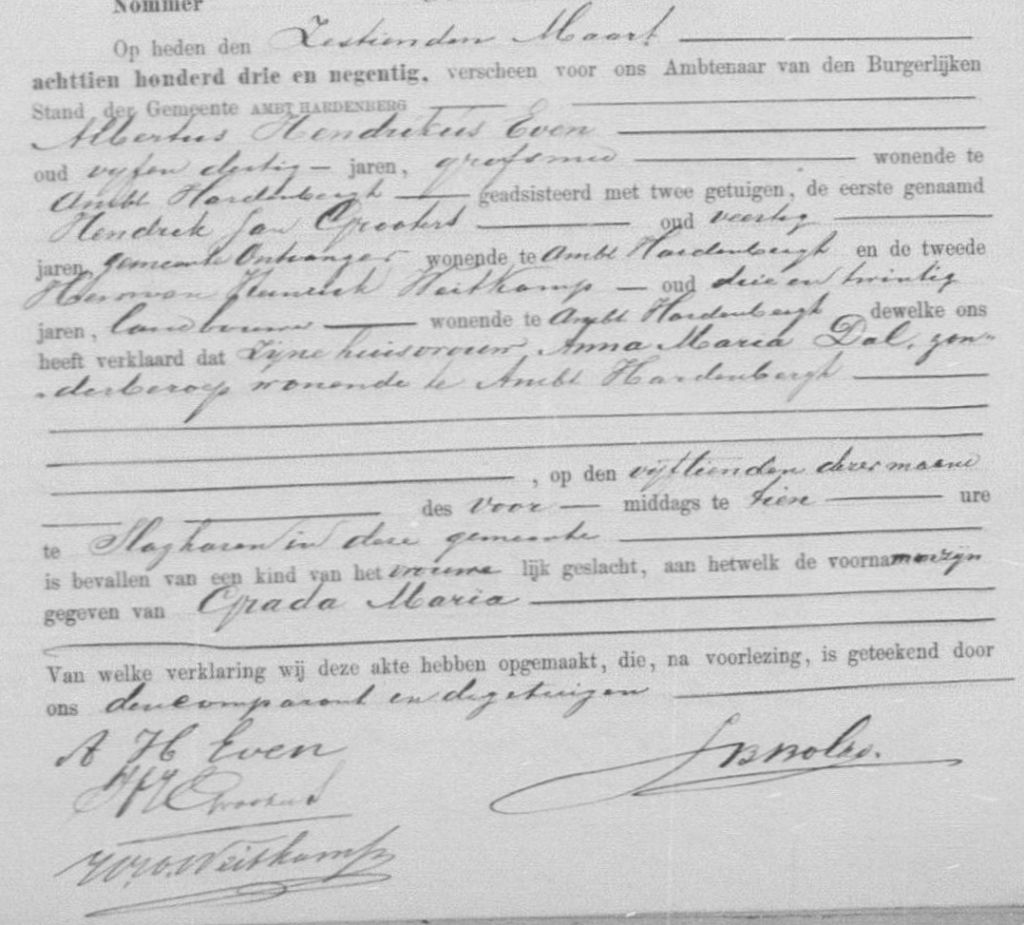 Nommer
Op heden den Zestienden Maart
achttien honderd drie en negentig, verscheen voor ons Ambtenaar van den Burgerlijken
Stand der Gemeente AMBT HARDENBERG
Albertus Hendrikus Even
oud vijf en dertig jaren, grofsmid wonende te
Ambt Hardenbergh geadsisteerd met twee getuigen, de eerste genaamd
Hendrik Jan Grooters oud veertig
jaren, gemeente Ontvanger wonende te Ambt Hardenbergh en de tweede
Herman Hendrik Weitkamp oud drie en twintig
jaren, landbouwer wonende te Ambt Hardenbergh dewelke ons
heeft verklaard dat Zijne huisvrouw, Anna Maria Dal, zon-
der beroep wonende te Ambt Hardenbergh
, op den vijftienden dezer maand
des voor middags te tien ure
te Slagharen in deze gemeente
is bevallen van een kind van het vrouwe lijk geslacht, aan hetwelk de voornamen zijn
gegeven van Grada Maria
Van welke verklaring wij deze akte hebben opgemaakt, die, na voorlezing, is geteekend door
ons den comparant en de getuigen
A H Even
HJ Grooters
Weitkamp